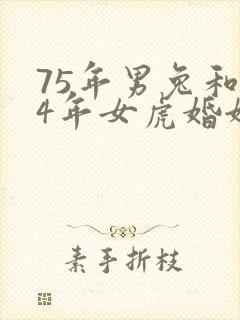 75年男兔和
4年女虎婚
素手折枝